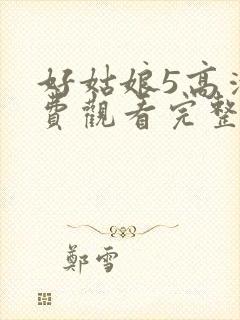 好姑娘5高清
費觀看完整
鄭雪